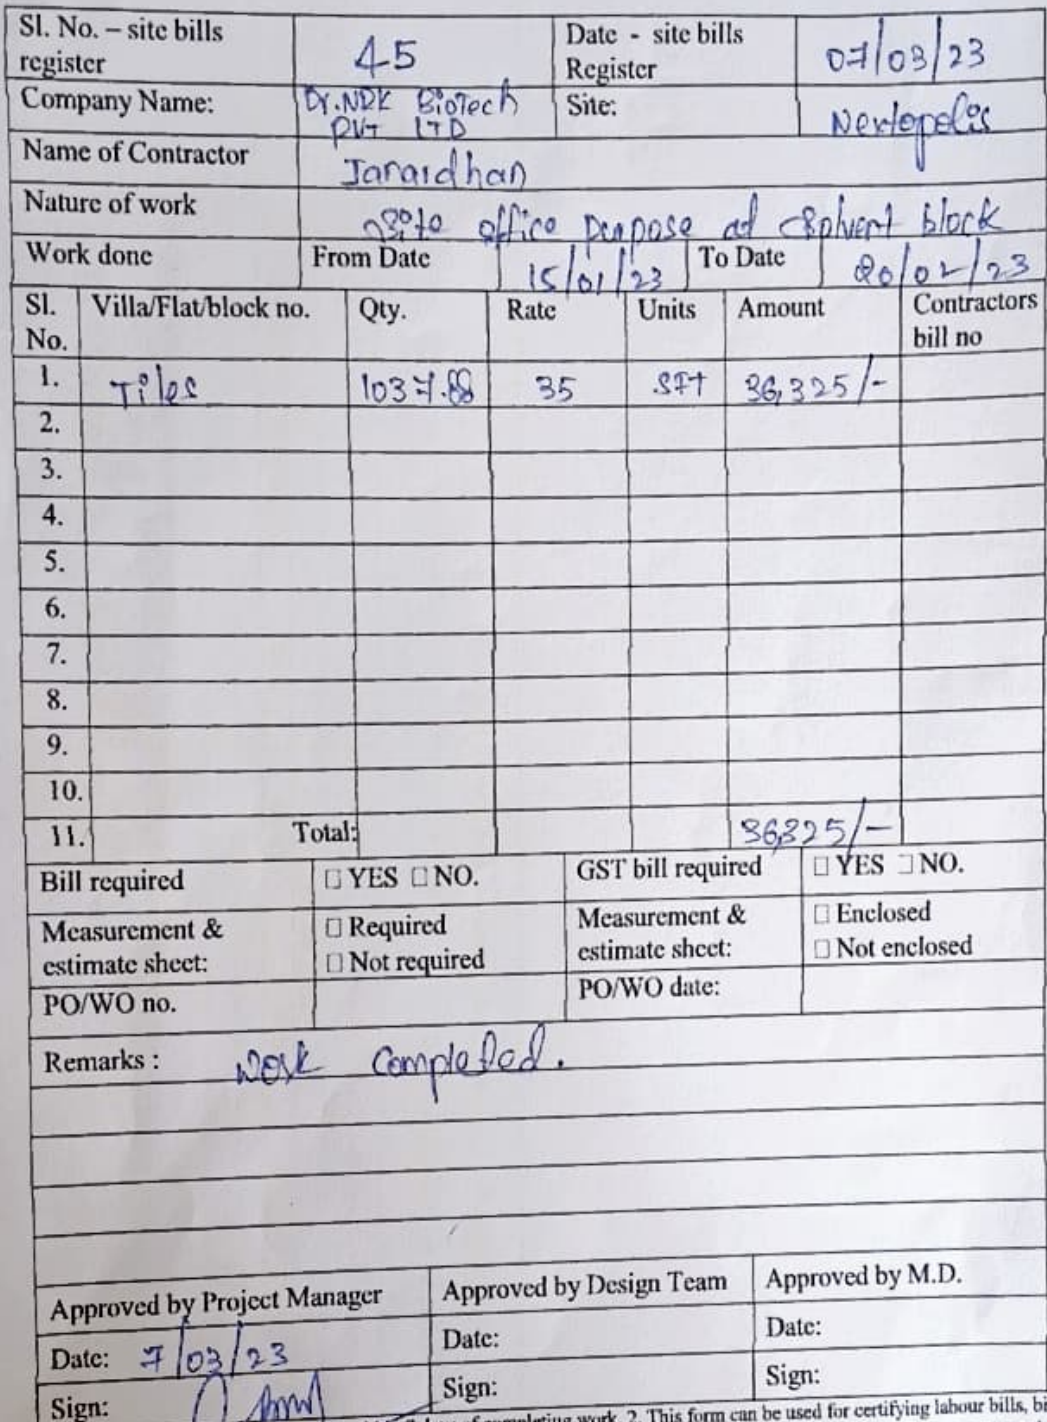 Sl. No. – site bills register 45 Date - site bills Register 07/03/23
Company Name: Dr.NRK BioTech PVT LTD Site: Nextopolis
Name of Contractor Janardhan
Nature of work Site office purpose at Solvent block
Work done From Date 15/01/23 To Date 20/02/23
Sl. No. Villa/Flat/block no. Qty. Rate Units Amount Contractors bill no
1. Tiles 1037.88 35 SFT 36,325/-
2.
3.
4.
5.
6.
7.
8.
9.
10.
11. Total: 36,325/-
Bill required □ YES □ NO. GST bill required □ YES □ NO.
Measurement & estimate sheet: □ Required □ Not required Measurement & estimate sheet: □ Enclosed □ Not enclosed
PO/WO no. PO/WO date:
Remarks : Work Completed.
Approved by Project Manager Approved by Design Team Approved by M.D.
Date: 7/03/23 Date: Date:
Sign: Sign: Sign:
of completing work. 2. This form can be used for certifying labour bills, bi